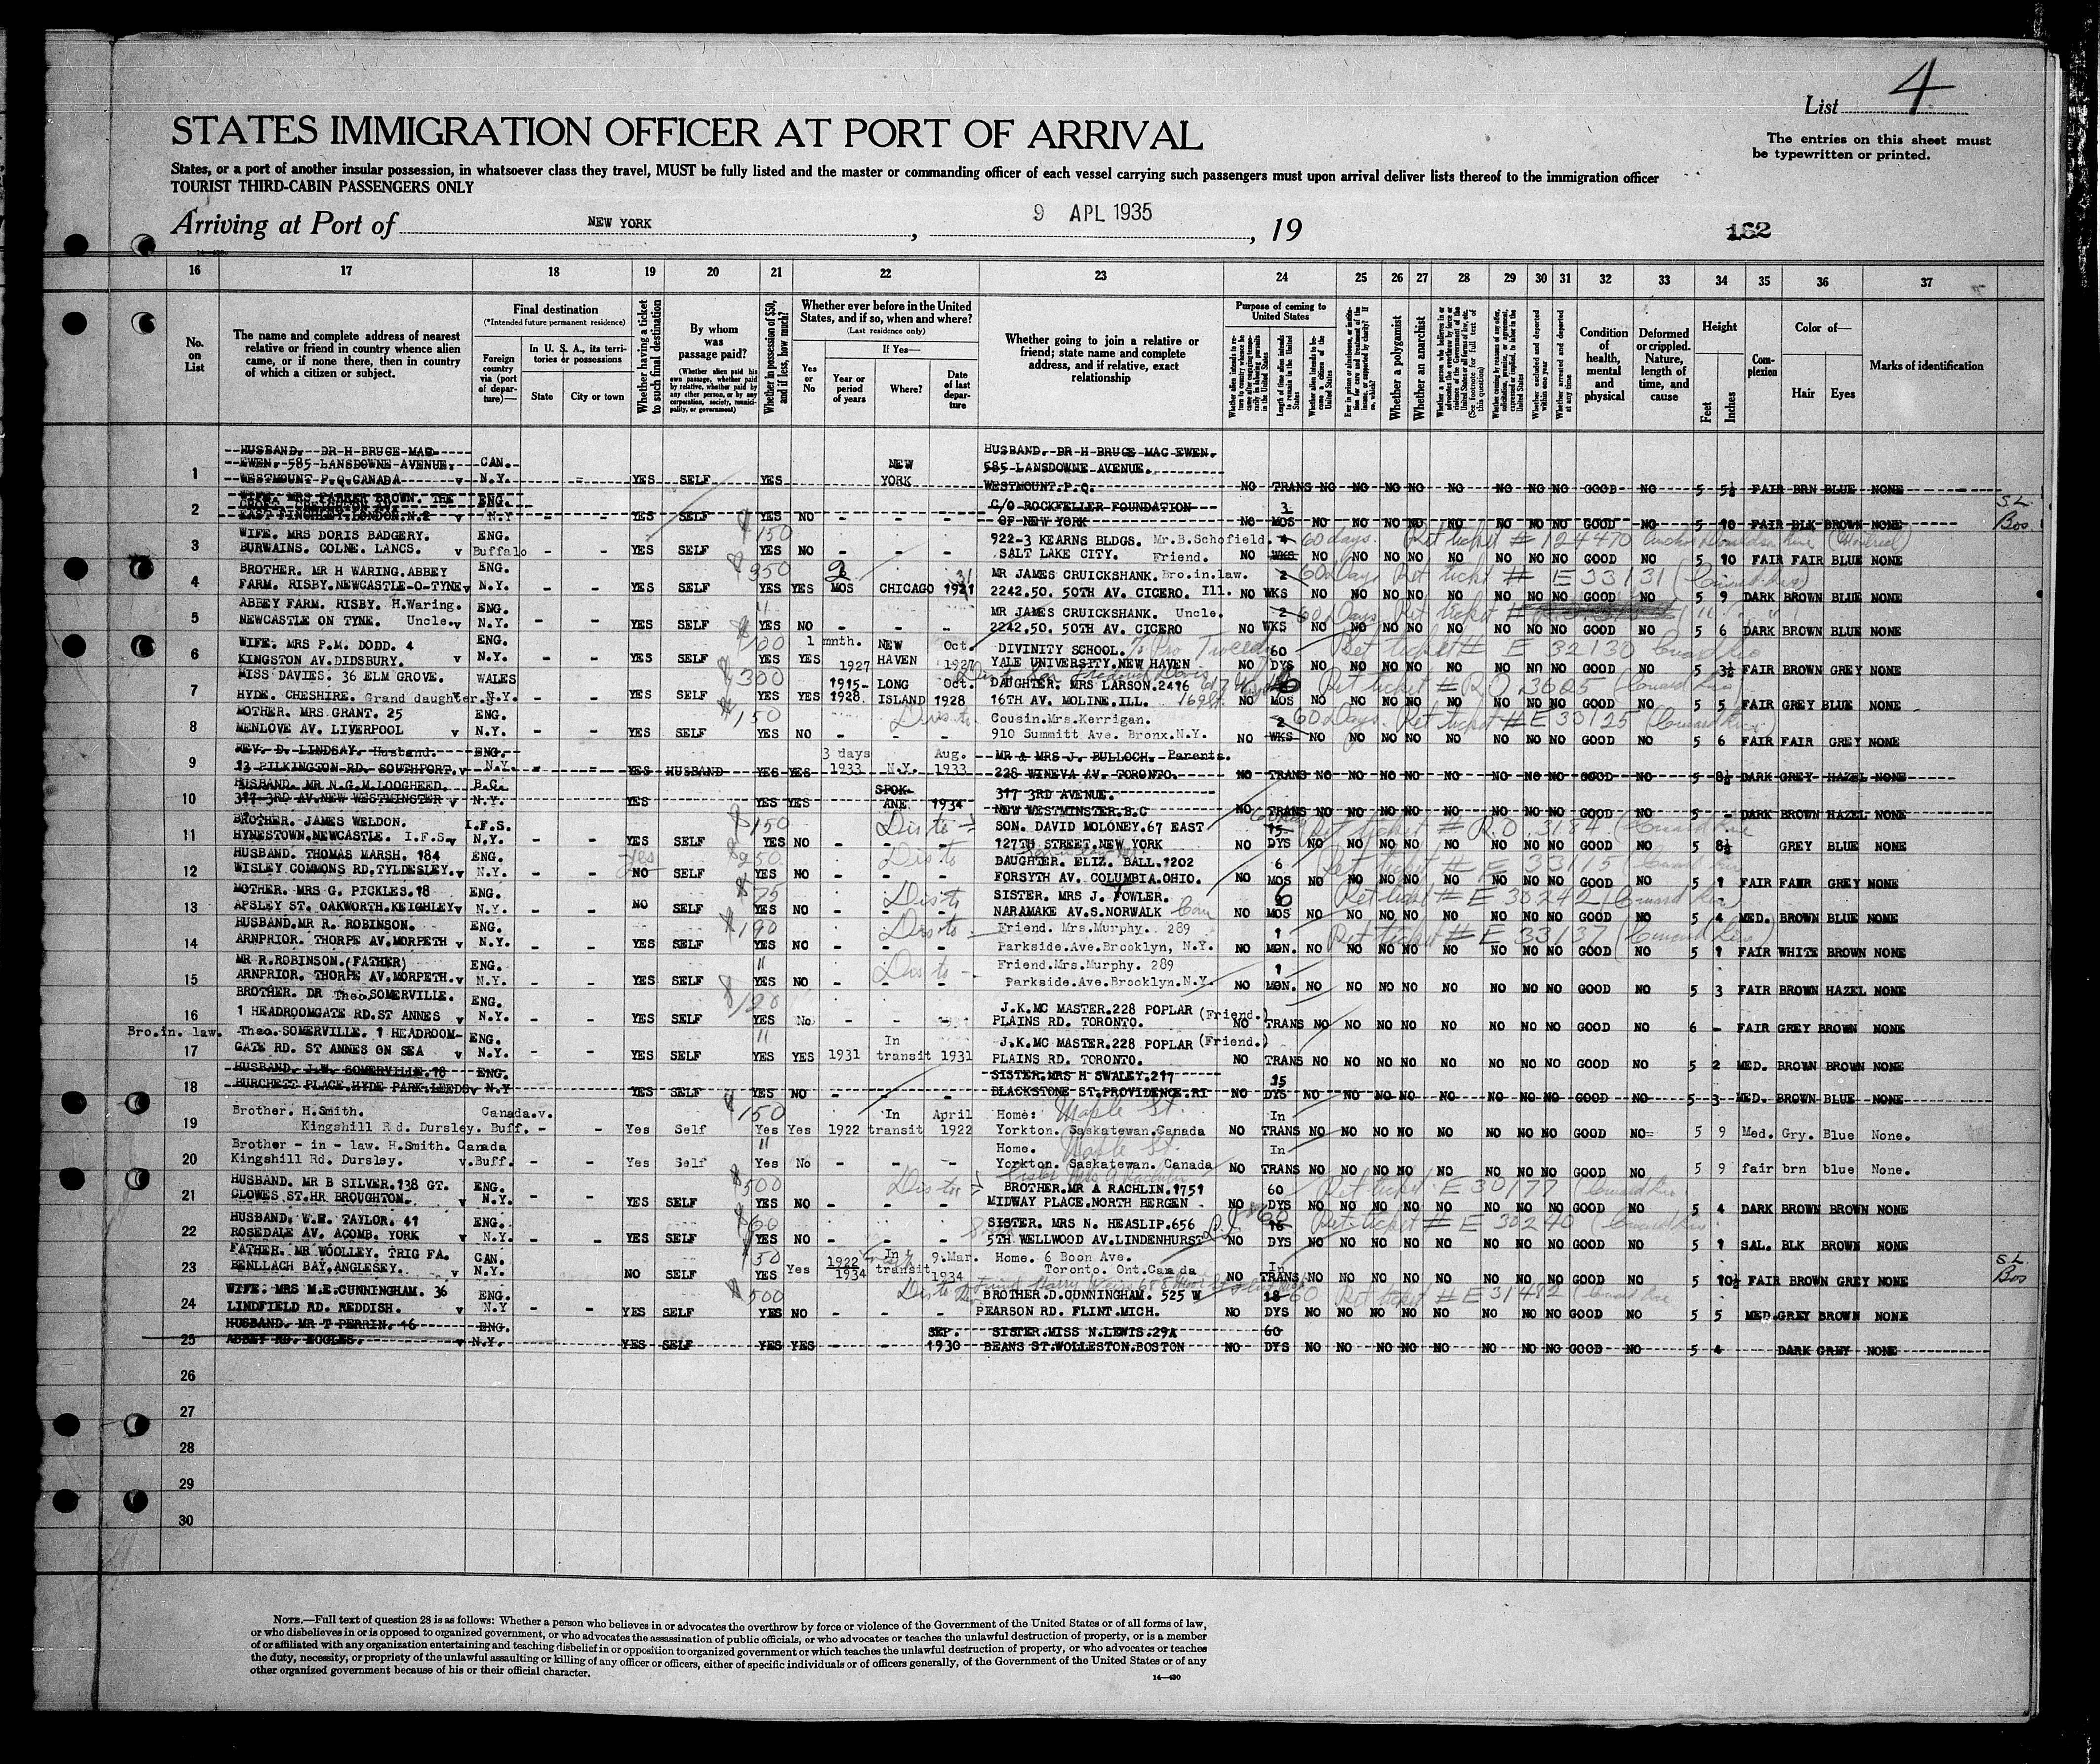 List 4
STATES IMMIGRATION OFFICER AT PORT OF ARRIVAL
The entries on this sheet must
be typewritten or printed.
States, or a port of another insular possession, in whatsoever class they travel, MUST be fully listed and the master or commanding officer of each vessel carrying such passengers must upon arrival deliver lists thereof to the immigration officer
TOURIST THIRD-CABIN PASSENGERS ONLY
Arriving at Port of NEW YORK, 9 APL 1935, 19
182
16 17 18 19 20 21 22 23 24 25 26 27 28 29 30 31 32 33 34 35 36 37
No. on List
The name and complete address of nearest relative or friend in country whence alien came, or if none there, then in country of which a citizen or subject.
Final destination
(*Intended future permanent residence)
Foreign country via (port of departure)—
In U. S. A., its territories or possessions
State City or town
Whether having a ticket to such final destination
By whom was passage paid?
(Whether alien paid his own passage, whether paid by relative, whether paid by any other person, or by any corporation, society, municipality, or government)
Whether in possession of $50, and if less, how much?
Whether ever before in the United States, and if so, when and where?
(Last residence only)
Yes or No
If Yes—
Year or period of years
Where?
Date of last departure
Whether going to join a relative or friend; state name and complete address, and if relative, exact relationship
Purpose of coming to United States
Length of time alien intends to remain in the United States
Whether a polygamist
Whether an anarchist
Whether excluded and deported within one year
Whether arrested and deported at any time
Condition of health, mental and physical
Deformed or crippled. Nature, length of time, and cause
Height
Feet Inches
Complexion
Color of—
Hair Eyes
Marks of identification
HUSBAND. DR H BRUCE MAC HUSBAND. DR H BRUCE MAC EWEN.
EWEN. 585 LANSDOWNE AVENUE. CAN. NEW 585 LANSDOWNE AVENUE.
1 WESTMOUNT P.Q. CANADA v N.Y. - - YES SELF YES YORK WESTMOUNT. P.Q. NO TRANS NO NO NO NO NO NO NO NO GOOD NO 5 5½ FAIR BRN BLUE NONE
WIFE. MRS PARKER BROWN. THE ENG. C/O ROCKFELLER FOUNDATION 3 S.L.
2 EAST FINCHLEY LONDON. N.2 v N.Y - - YES SELF YES NO - - - OF NEW YORK NO MOS NO NO NO NO NO NO NO NO GOOD NO 5 10 FAIR BLK BROWN NONE Bos.
WIFE. MRS DORIS BADGERY. ENG. $150 922-3 KEARNS BLDGS. Mr.B.Schofield. 4 60 days. Ret ticket # 124470 Anchor Donaldson Line (Montreal)
3 BURWAINS. COLNE. LANCS. v Buffalo - - YES SELF YES NO - - - SALT LAKE CITY. Friend. NO WKS NO NO NO NO NO NO NO NO GOOD NO 5 10 FAIR FAIR BLUE NONE
BROTHER. MR H WARING. ABBEY ENG. $350 2 31 MR JAMES CRUICKSHANK. Bro.in.law. 2 60 Days Ret ticket # E 33131 (Cunard Line)
4 FARM. RISBY. NEWCASTLE-O-TYNE v N.Y. - - YES SELF YES YES MOS CHICAGO 1921 2242.50. 50TH AV. CICERO. Ill. NO WKS NO NO NO NO NO NO NO NO GOOD NO 5 9 DARK BROWN BLUE NONE
ABBEY FARM. RISBY. H.Waring. ENG. " MR JAMES CRUICKSHANK. Uncle. 2 60 Days Ret ticket # " "
5 NEWCASTLE ON TYNE. Uncle.v N.Y. - - YES SELF YES NO - - - 2242.50. 50TH AV. CICERO NO WKS NO NO NO NO NO NO NO NO GOOD NO 5 6 DARK BROWN BLUE NONE
WIFE. MRS P.M. DODD. 4 ENG. $100 1 mnth. NEW Oct. DIVINITY SCHOOL. 60 Ret ticket # E 32130 Cunard Line
6 KINGSTON AV. DIDSBURY. v N.Y. - - YES SELF YES YES 1927 HAVEN 1927 YALE UNIVERSITY. NEW HAVEN NO DYS NO NO NO NO NO NO NO NO GOOD NO 5 3½ FAIR BROWN GREY NONE
MISS DAVIES. 36 ELM GROVE. WALES $300 1915- LONG Oct. DAUGHTER. MRS LARSON. 2416 6 Ret ticket # RO 3625 (Cunard Line)
7 HYDE. CHESHIRE. Grand daughter. N.Y. - - YES SELF YES YES 1928 ISLAND 1928 16TH AV. MOLINE. ILL. NO MOS NO NO NO NO NO NO NO NO GOOD NO 5 5 FAIR GREY BLUE NONE
MOTHER. MRS GRANT. 25 ENG. $150 Dis to Cousin.Mrs.Kerrigan. 2 60 Days. Ret ticket # E 33125 (Cunard Line)
8 MENLOVE AV. LIVERPOOL v N.Y. - - YES SELF YES NO - - - 910 Summitt Ave. Bronx.N.Y. NO WKS NO NO NO NO NO NO NO NO GOOD NO 5 6 FAIR FAIR GREY NONE
REV. D. LINDSAY. Husband. ENG. 3 days Aug. MR & MRS J. BULLOCH. Parents.
9 13 PILKINGTON RD. SOUTHPORT. v N.Y. - - YES HUSBAND YES YES 1933 N.Y. 1933 228 WINEVA AV. TORONTO. NO TRANS NO NO NO NO NO NO NO NO GOOD NO 5 8½ DARK GREY HAZEL NONE
HUSBAND. MR N.G.M.LOOGHEED. B.C. SPOK- 317 3RD AVENUE.
10 317 3RD AV. NEW WESTMINSTER v N.Y. YES YES YES ANE 1934 NEW WESTMINSTER. B.C NO TRANS NO NO NO NO NO NO NO NO GOOD NO 5 - DARK BROWN HAZEL NONE
BROTHER. JAMES WELDON. I.F.S. $150 Dis to SON. DAVID MOLONEY. 67 EAST 15 60 days Ret ticket # R.O. 3184 (Cunard Line
11 HYNESTOWN. NEWCASTLE. I.F.S. v N.Y. - - YES SELF YES NO - - - 127TH STREET. NEW YORK NO DYS NO NO NO NO NO NO NO NO GOOD NO 5 8½ GREY BLUE NONE
HUSBAND. THOMAS MARSH. 184 ENG. yes $250 Dis to DAUGHTER. ELIZ. BALL. 1202 6 Ret ticket # E 33115 (Cunard Line
12 WISLEY COMMONS RD. TYLDESLEY. v N.Y. - - NO SELF YES NO - - - FORSYTH AV. COLUMBIA. OHIO. NO MOS NO NO NO NO NO NO NO NO GOOD NO 5 1 FAIR FAIR GREY NONE
MOTHER. MRS G. PICKLES. 18 ENG. $75 Dis to SISTER. MRS J. FOWLER. 6 Ret ticket # E 30242 (Cunard Line)
13 APSLEY ST. OAKWORTH. KEIGHLEY v N.Y. - - NO SELF YES NO - - - NARAMAKE AV. S. NORWALK Con NO MOS NO NO NO NO NO NO NO NO GOOD NO 5 4 MED. BROWN BLUE NONE
HUSBAND. MR R. ROBINSON. ENG. $190 Dis to Friend. Mrs.Murphy. 289 1 Ret ticket # E 33137 (Cunard Line)
14 ARNPRIOR. THORPE AV. MORPETH v N.Y. - - YES SELF YES NO - - - Parkside.Ave.Brooklyn, N.Y. NO MON. NO NO NO NO NO NO NO NO GOOD NO 5 1 FAIR WHITE BROWN NONE
MR R.ROBINSON. (FATHER) ENG. " Dis to Friend.Mrs.Murphy. 289 1
15 ARNPRIOR. THORPE AV. MORPETH. v N.Y. - - YES SELF YES NO - - - Parkside.Ave.Brooklyn.N.Y. NO MON. NO NO NO NO NO NO NO NO GOOD NO 5 3 FAIR BROWN HAZEL NONE
BROTHER. DR Theo. SOMERVILLE. ENG. $120 J.K.MC MASTER. 228 POPLAR (Friend.)
16 1 HEADROOMGATE RD. ST ANNES v N.Y. - - YES SELF YES No - - - PLAINS RD. TORONTO. NO TRANS NO NO NO NO NO NO NO NO GOOD NO 6 - FAIR GREY BROWN NONE
Bro.in. law. Theo. SOMERVILLE. 1 HEADROOM- ENG. " In J.K.MC MASTER. 228 POPLAR (Friend.)
17 GATE RD. ST ANNES ON SEA v N.Y. - - YES SELF YES YES 1931 transit 1931 PLAINS RD. TORONTO. NO TRANS NO NO NO NO NO NO NO NO GOOD NO 5 2 MED. BROWN BROWN NONE
HUSBAND. J.W. SOMERVILLE. 18 ENG. SISTER. MRS H SWALEY. 217 15
18 BURCHETT PLACE. HYDE PARK. LEEDS v N.Y YES SELF YES NO - - - BLACKSTONE ST. PROVIDENCE. RI NO DYS NO NO NO NO NO NO NO NO GOOD NO 5 3 MED. BROWN BLUE NONE
Brother. H.Smith. Canada.v. $150 In April Home: Maple St. In
19 Kingshill Rd. Dursley. Buff. - - Yes Self Yes Yes 1922 transit 1922 Yorkton. Saskatewan. Canada NO TRANS NO NO NO NO NO NO NO NO GOOD NO 5 9 Med. Gry. Blue None.
Brother - in - law. H.Smith. Canada " Home. Maple St. In
20 Kingshill Rd. Dursley. v.Buff. - - Yes Self Yes No - - - Yorkton. Saskatewan. Canada NO TRANS NO NO NO NO NO NO NO NO GOOD NO 5 9 fair brn blue None.
HUSBAND. MR B SILVER. 138 GT. ENG. $500 Dis to BROTHER. MR A RACHLIN. 1751 60 Ret ticket E 30177 (Cunard Line
21 CLOWES ST. HR BROUGHTON. v N.Y. - - YES SELF YES NO - - - MIDWAY PLACE. NORTH BERGEN NO DYS NO NO NO NO NO NO NO NO GOOD NO 5 4 DARK BROWN BROWN NONE
HUSBAND. W.H. TAYLOR. 41 ENG. $60 SISTER. MRS N. HEASLIP. 656 L.I. 60 Ret ticket # E 30240 (Cunard Line
22 ROSEDALE AV. ACOMB. YORK v N.Y. - - YES SELF YES NO - - - 5TH WELLWOOD AV. LINDENHURST NO DYS NO NO NO NO NO NO NO NO GOOD NO 5 1 SAL. BLK BROWN NONE
FATHER. MR WOOLLEY. TRIG FA. CAN. $50 1922 In 9.Mar. Home. 6 Boon Ave. In S.L.
23 BENLLACH BAY. ANGLESEY. v N.Y. NO SELF YES Yes 1934 transit 1934 Toronto. Ont. Canada NO TRANS NO NO NO NO NO NO NO NO GOOD NO 5 10½ FAIR BROWN GREY NONE Bos
WIFE. MRS M.E.CUNNINGHAM. 36 ENG. $500 Dis to BROTHER. D.CUNNINGHAM. 525 W 18 60 Ret ticket # E 31482 (Cunard Line
24 LINDFIELD RD. REDDISH. v N.Y - - YES SELF YES NO - - - PEARSON RD. FLINT. MICH. NO DYS NO NO NO NO NO NO NO NO GOOD NO 5 5 MED. GREY BROWN NONE
HUSBAND. MR T PERRIN. 16 ENG. SEP. SISTER. MISS N.LEWIS. 29A 60
25 ABBEY RD. ECCLES. v N.Y. YES SELF YES YES - - 1930 BEANS ST. WOLLESTON. BOSTON NO DYS NO NO NO NO NO NO NO NO GOOD NO 5 4 DARK GREY NONE
26
27
28
29
30
NOTE.—Full text of question 28 is as follows: Whether a person who believes in or advocates the overthrow by force or violence of the Government of the United States or of all forms of law,
or who disbelieves in or is opposed to organized government, or who advocates the assassination of public officials, or who advocates or teaches the unlawful destruction of property, or is a member
of or affiliated with any organization entertaining and teaching disbelief in or opposition to organized government or which teaches the unlawful destruction of property, or who advocates or teaches
the duty, necessity, or propriety of the unlawful assaulting or killing of any officer or officers, either of specific individuals or of officers generally, of the Government of the United States or of any
other organized government because of his or their official character.
14—430